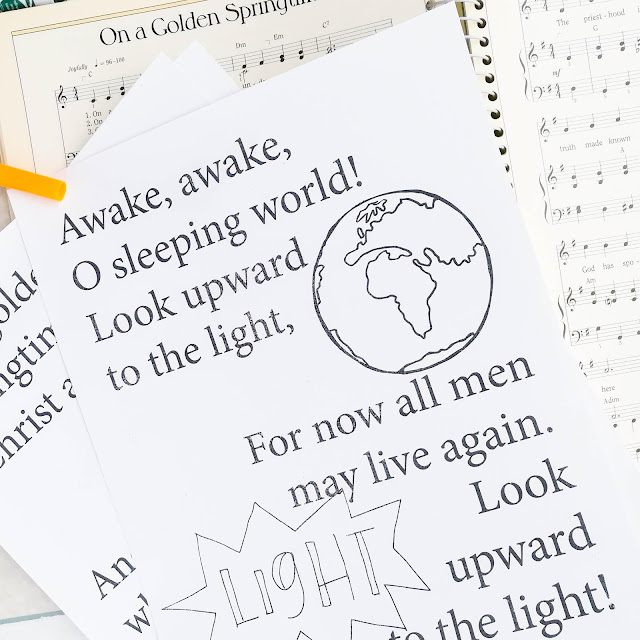 On a Golden Springtim
Joyfully ♩ = 96–100
C
Dm
Em
Dm
1. On
2. On
3.
Awake, awake,
O sleeping world!
Look upward
to the light,
For now all men
may live again.
Look
upward
to the light!
LIGHT
olde
ngtin
Christ a
An
w
The priest - hood
G
C
mf
truth made known
A
God has spo -
Am
here
Adim